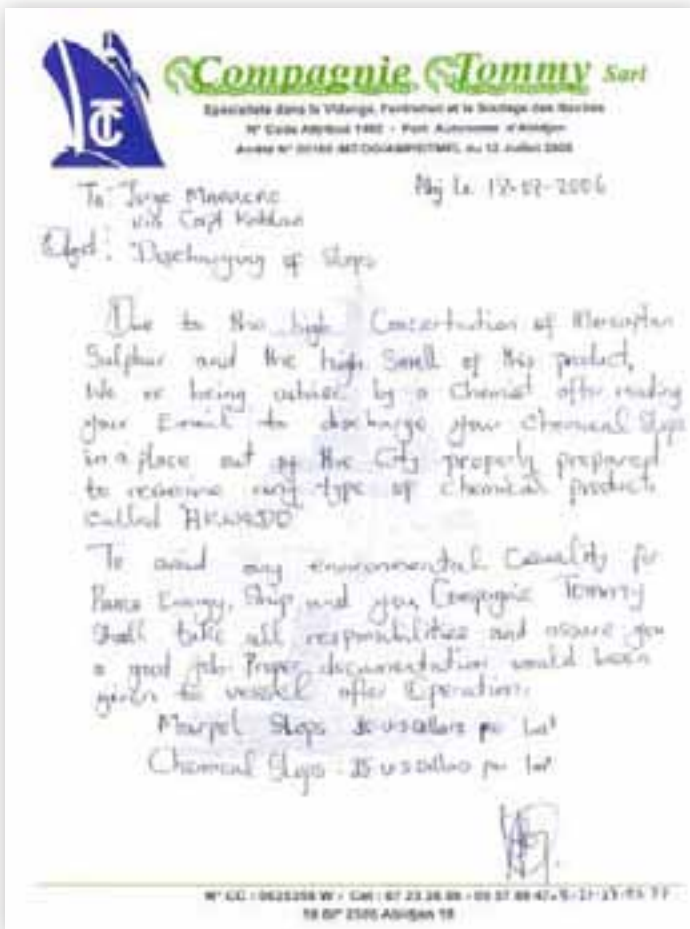 Compagnie Tommy Sarl
Spécialiste dans la Vidange, l'entretien et le Soutage des Navires
N° Code Attribué 1402 - Port Autonome d'Abidjan
To: Jorge Marrero
Abj Le 18-
-2006
via Capt Kablan
Objet: Discharging of Slops
Due to the high Concertration of Mercaptan
Sulphur and the high Smell of this product,
We
being advise by a Chemist after reading
your Email to discharge your Chemical Slops
in a place out of the City properly prepared
to receive any type of Chemical product
Called "AKWEDO"
To avoid any environmental Casuality for
Puma Energy, Ship and you, Compagnie Tommy
Shall take all responsibilities and assure you
a good job. Proper documentation would been
given to vessel after Operation.
Marpol Slops
us dollars per
Chemical Slops : 35 us dollars per
N° CC : 0625208 W - Cel : 07 23 26 86 -
18 BP 2505 Abidjan 18